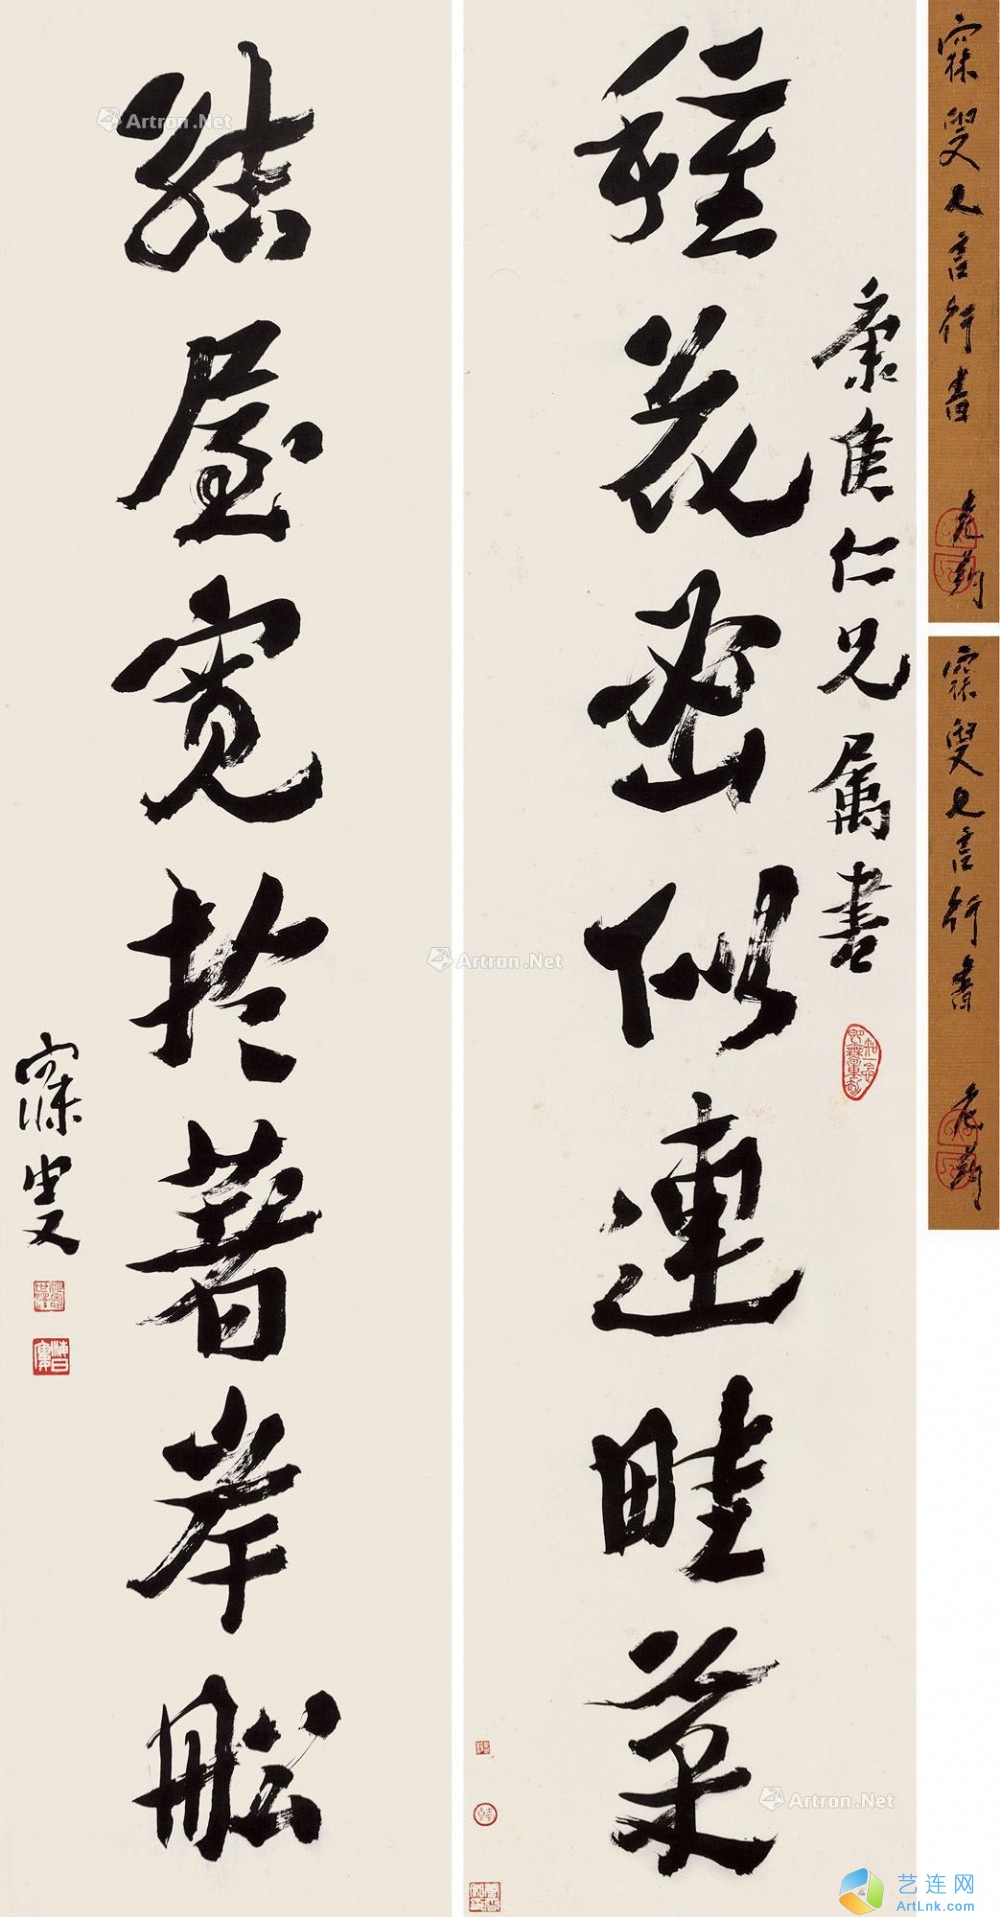 種花密似連畦菜
康侯仁兄屬書
結屋寬於著岸船
寐叟
寐叟七言行書
寐叟七言行書
Artron.Net
Artron.Net
Artron.Net
艺连网
ArtLnk.com